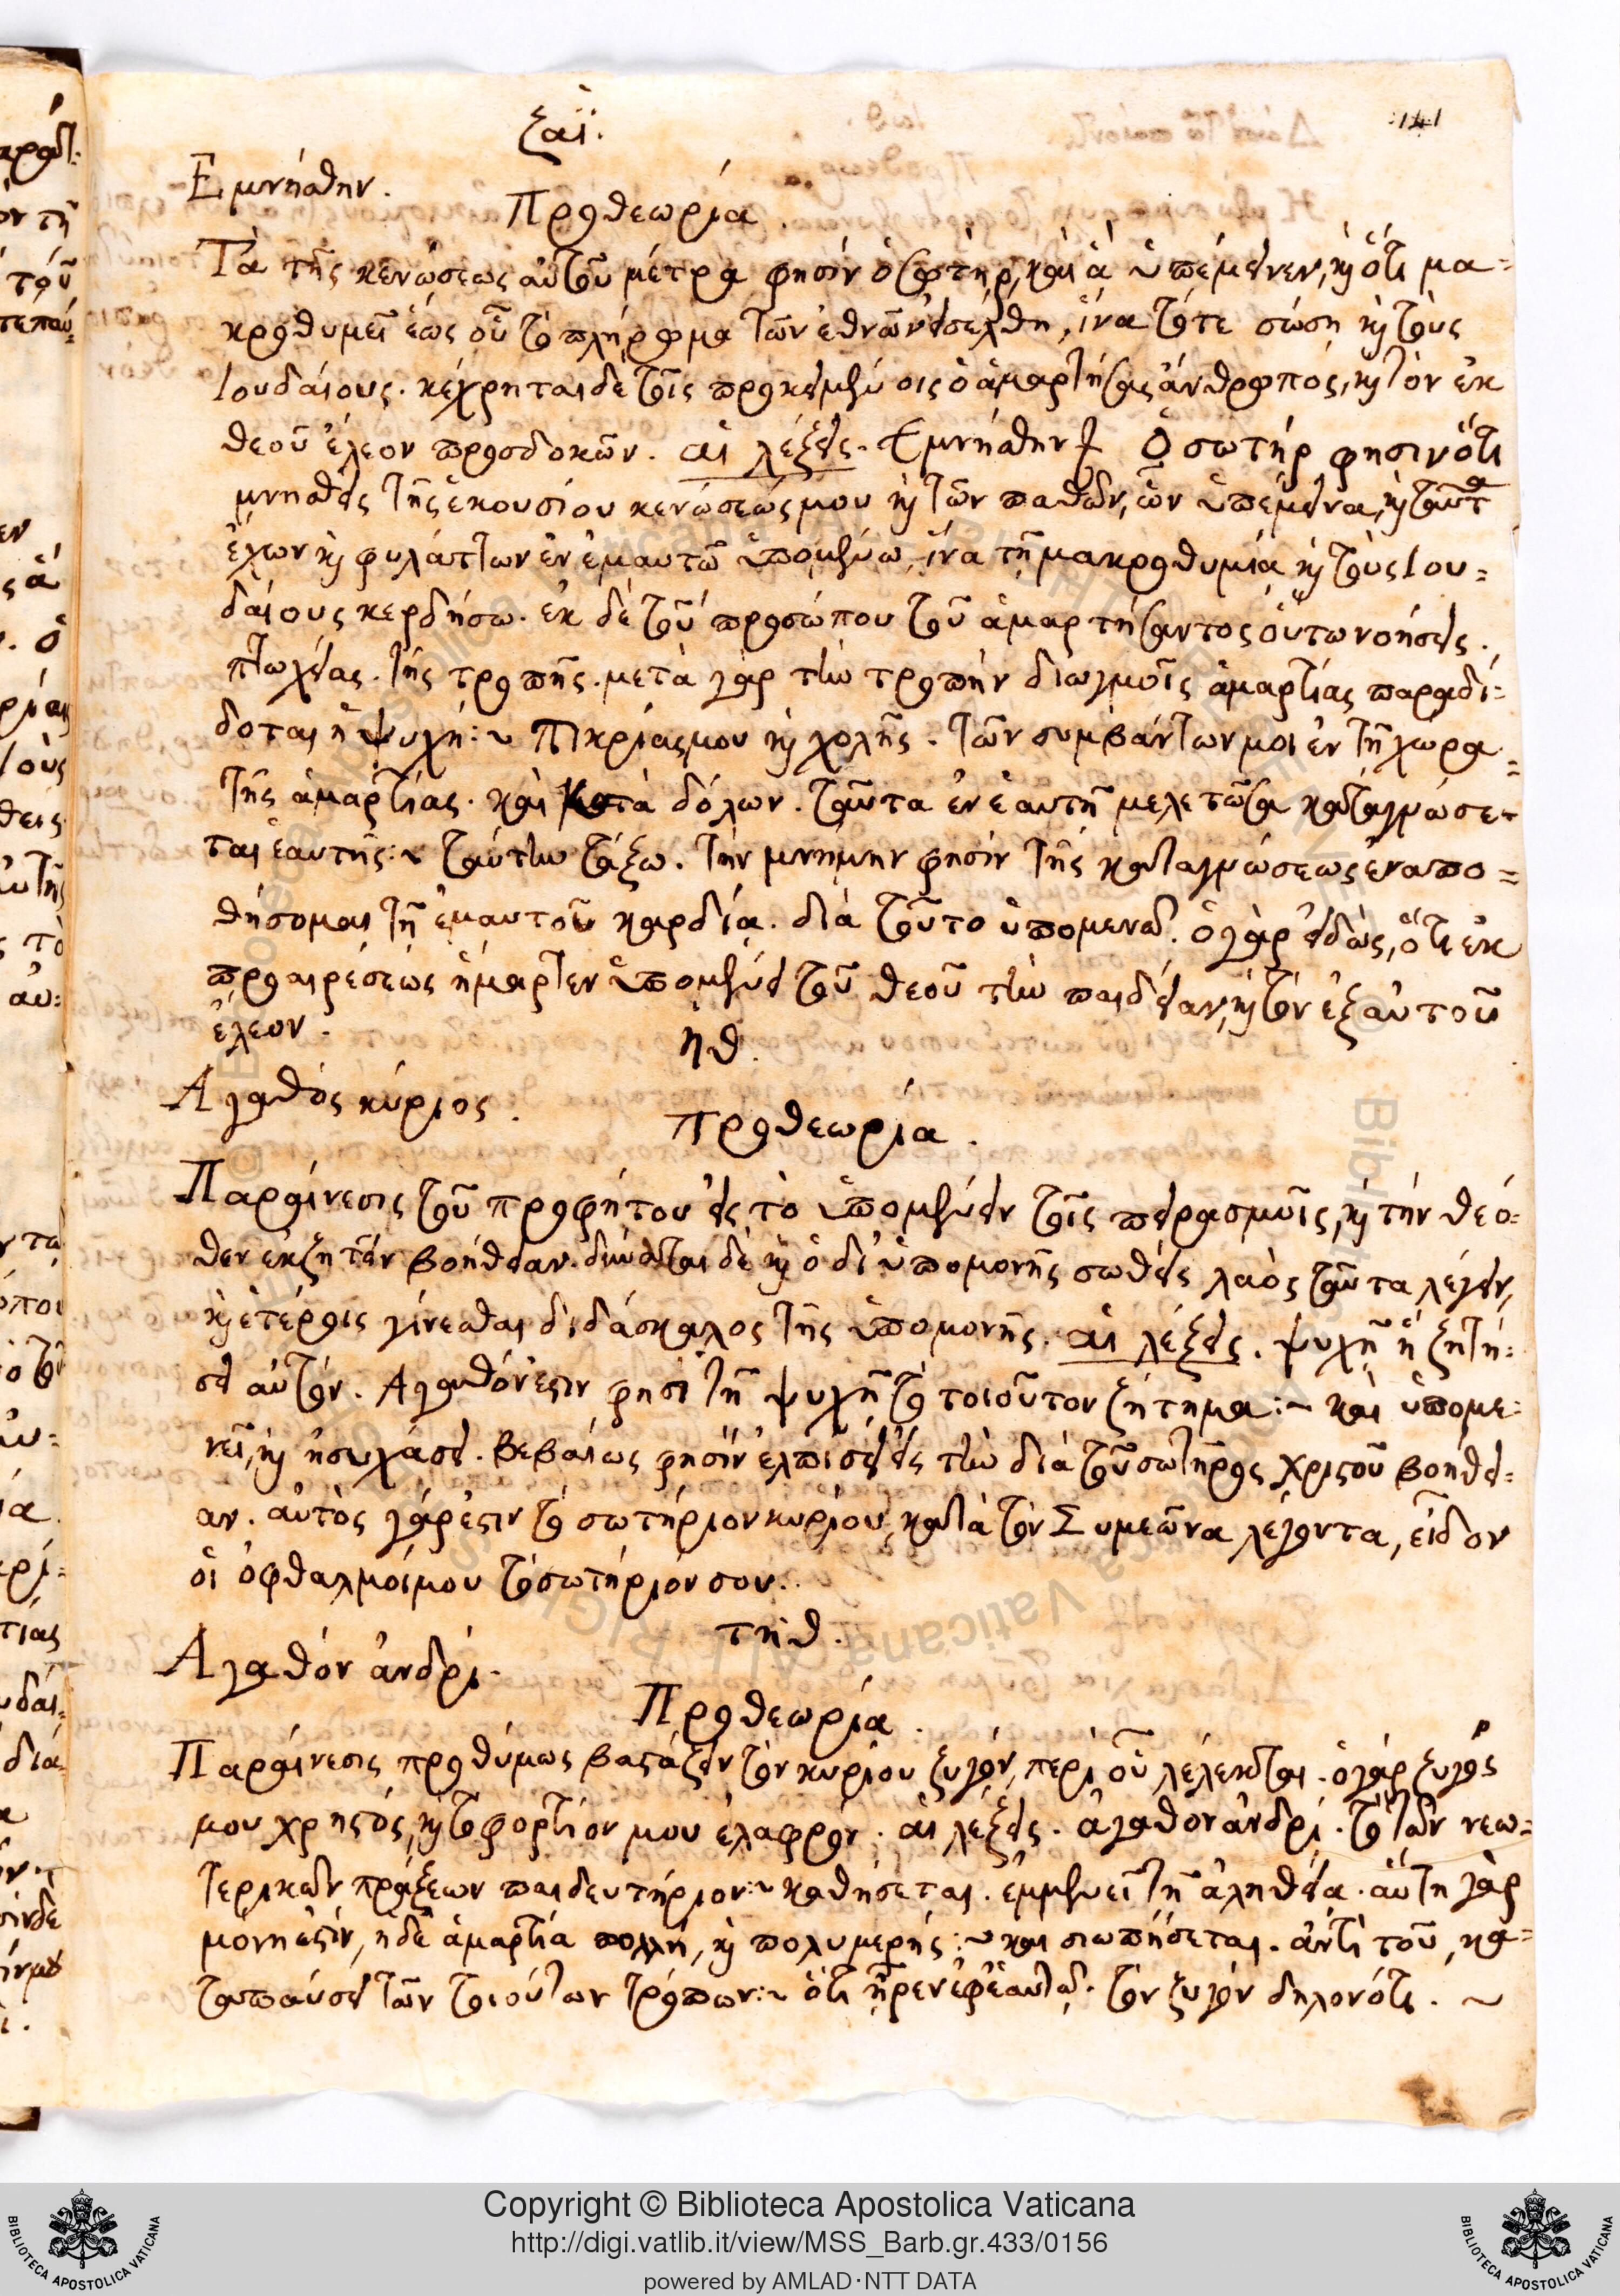 ζαϊ.
141
Εμνήσθην.
Προθεωρία
Τὰ τῆς κενώσεως αὐτοῦ μέτρα φησὶν ὁ σωτὴρ, καὶ ἃ ὑπέμεινεν, καὶ ὅτι μα=
κροθυμεῖ ἕως οὗ τὸ πλήρωμα τῶν ἐθνῶν εἰσέλθη, ἵνα τότε σώση καὶ τοὺς
Ιουδαίους. κέχρηται δὲ τοῖς προκειμένοις ὁ ἁμαρτήσας ἄνθρωπος, καὶ τὸν ἐκ
θεοῦ ἔλεον προσδοκῶν. αἱ λέξεις. Εμνήσθην Ὁ σωτήρ φησιν ὅτι
μνησθεὶς τῆς ἑκουσίου κενώσεώς μου καὶ τῶν παθῶν, ὧν ὑπέμεινα, καὶ ταῦτα
ἔχων καὶ φυλάττων ἐν ἐμαυτῶ ὑπομένω, ἵνα τῆ μακροθυμία καὶ τοὺς Ιου=
δαίους κερδήσω. ἐκ δὲ τοῦ προσώπου τοῦ ἁμαρτήσαντος οὕτω νοήσεις.
πτωχείας. τῆς τροπῆς. μετὰ γὰρ τὴν τροπὴν διωγμοῖς ἁμαρτίας παραδί=
δοται ἡ ψυχή:~ Πικρίας μου καὶ χολῆς. τῶν συμβάντων μοι ἐν τῆ χώρα
τῆς ἁμαρτίας. καὶ κατὰ δόλων. ταῦτα ἐν ἑαυτῆ μελετῶσα καταγνώσε=
ται ἑαυτῆς:~ ταύτην τάξω. τὴν μνήμην φησὶν τῆς καταγνώσεως ἐναπο=
θήσομαι τῆ ἐμαυτοῦ καρδία. διὰ τοῦτο ὑπομενῶ. ὁ γὰρ εἰδὼς, ὅτι ἐκ
προαιρέσεως ἥμαρτεν ὑπομένει τοῦ θεοῦ τὴν παιδείαν, καὶ τὸν ἐξ αὐτοῦ
ἔλεον.
ηθ.
Αγαθὸς κύριος.
Προθεωρία.
Παραίνεσις τοῦ προφήτου εἰς τὸ ὑπομένειν τοῖς πειρασμοῖς, καὶ τὴν θεό=
θεν ἐκζητεῖν βοήθειαν. δύναται δὲ καὶ ὁ δι' ὑπομονῆς σωθεὶς λαὸς ταῦτα λέγειν,
καὶ ἑτέροις γίνεσθαι διδάσκαλος τῆς ὑπομονῆς. αἱ λέξεις. ψυχῆ ἣ ζητή=
σει αὐτόν. Αγαθόν ἐστιν φησὶ τῆ ψυχῆ τὸ τοιοῦτον ζήτημα:~ καὶ ὑπομε=
νεῖ, καὶ ἡσυχάσει. Βεβαίως φησὶν ἐλπίσει εἰς τὴν διὰ τοῦ σωτῆρος Χριστοῦ βοήθει=
αν. αὐτὸς γάρ ἐστιν τὸ σωτήριον κυρίου, κατὰ τὸν Συμεῶνα λέγοντα, εἶδον
οἱ ὀφθαλμοί μου τὸ σωτήριόν σου.
τηθ.
Αγαθὸν ἀνδρὶ.
Προθεωρία.
Παραίνεσις προθύμως βαστάζειν τὸν κυρίου ζυγόν, περὶ οὗ λέλεκται. ὁ γάρ ζυγός
μου χρηστὸς, καὶ τὸ φορτίον μου ἐλαφρόν. αἱ λέξεις. ἀγαθὸν ἀνδρὶ. τὸ τῶν νεω=
τερικῶν πράξεων παιδευτήριον:~ καθήσεται. ἐμμενεῖ τῆ ἀληθεία. αὕτη γὰρ
μόνη ἐστίν, ἡ δὲ ἁμαρτία πολλή, καὶ πολυμερής:~ καὶ σιωπήσεται. ἀντὶ τοῦ, κα=
ταπαύσει τῶν τοιούτων τρόπων:~ ὅτι ἦρεν ἐφ' ἑαυτῶ. τὸν ζυγὸν δηλονότι. ~
Copyright © Biblioteca Apostolica Vaticana
http://digi.vatlib.it/view/MSS_Barb.gr.433/0156
powered by AMLAD·NTT DATA